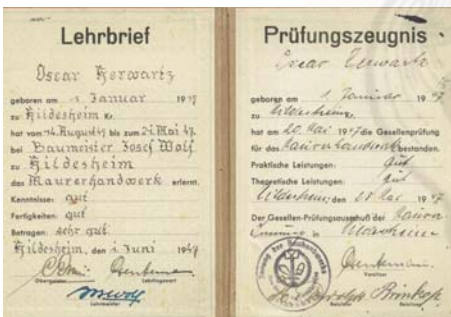 Lehrbrief
Oscar Herwartz
geboren am 1. Januar 19
zu Hildesheim Kr.
hat vom 14. August 45 bis zum 21. Mai 47.
bei Baumeister Josef Wolf
zu Hildesheim
das Maurerhandwerk erlernt.
Kenntnisse: gut
Fertigkeiten: gut
Betragen: sehr gut
Hildesheim, den 1. Juni 1947
Obermeister Lehrlingswart
Lehrmeister
Prüfungszeugnis
Oscar Herwartz
geboren am 1. Januar 19
zu Hildesheim
hat am 20. Mai 1947 die Gesellenprüfung
für das Maurerhandwerk bestanden.
Praktische Leistungen: Gut
Theoretische Leistungen: Gut
Hildesheim, den Mai 19
Der Gesellen-Prüfungsausschuß der Maurer
Innung in Hildesheim
Vorsitzer
Beisitzer Beisitzer